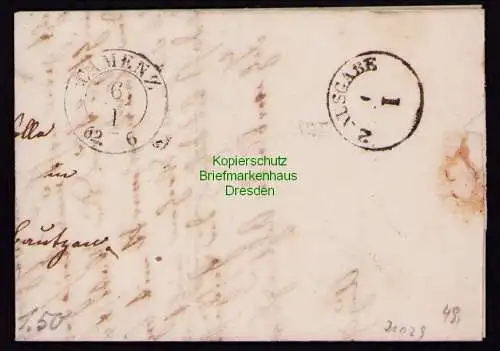 KAMENZ
6
I
62 6
2. AUSGABE
I
Kopierschutz
Briefmarkenhaus
Dresden
in
Bautzen
1.50
21029
48,